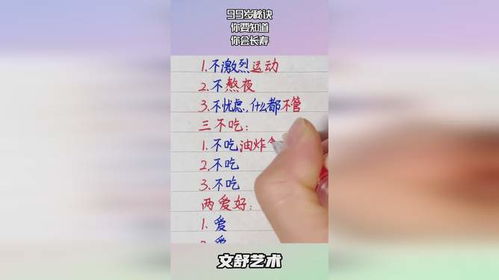 99岁秘诀
你要知道
你会长寿
1.不激烈运动
2.不熬夜
3.不忧虑,什么都不管
三不吃:
1.不吃油炸
2.不吃
3.不吃
两爱好:
1.爱
2.爱
文舒艺术